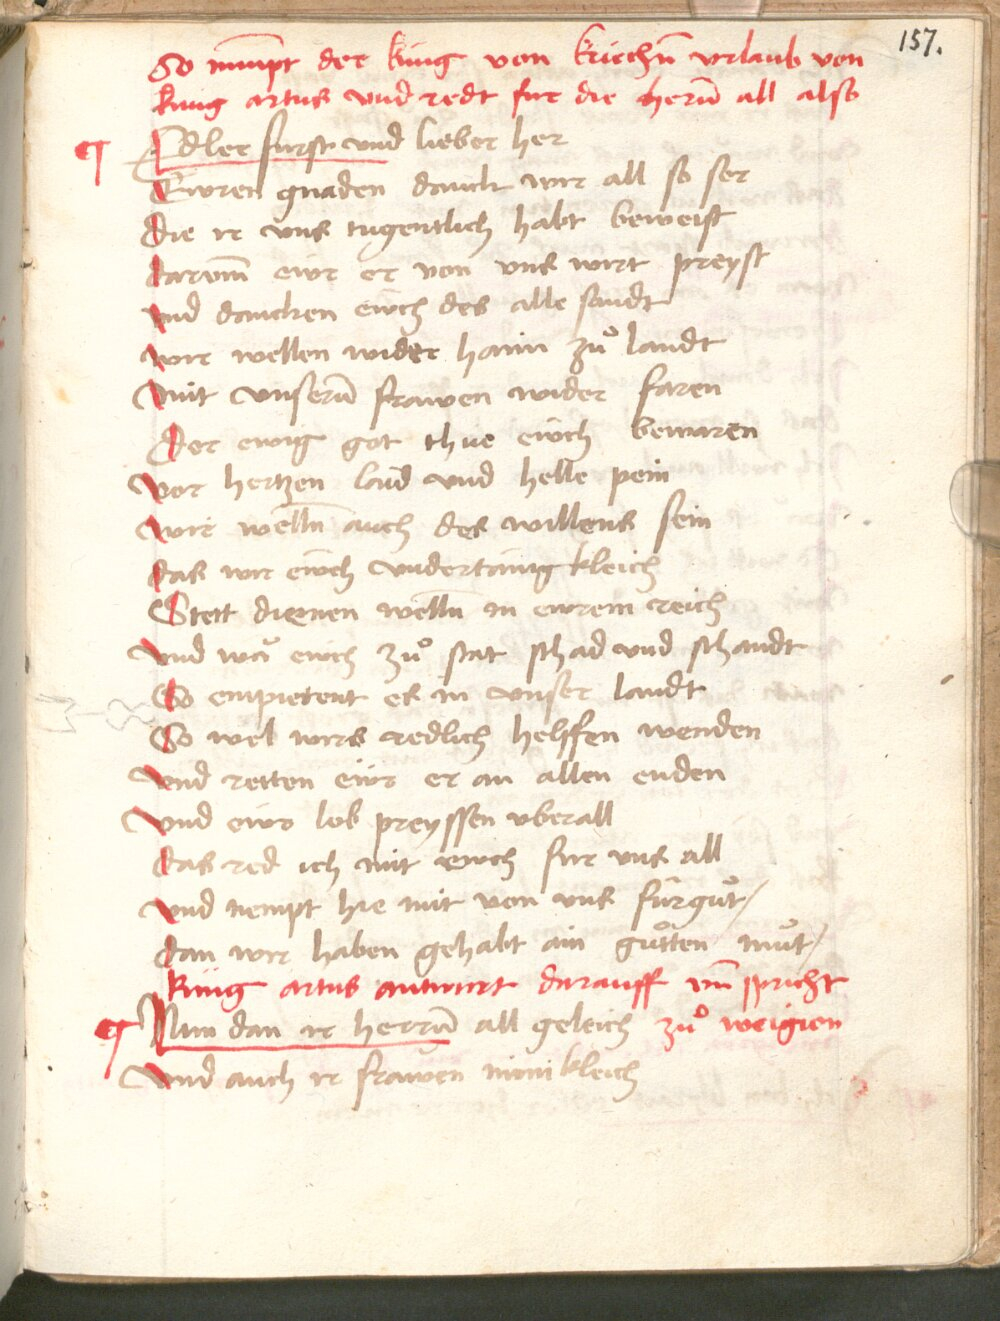 157.
So nimpt der king von kriechn̄ vrlaub von
king artus vnd redt fur die herrn̄ all also
¶ Edler furst vnd lieber her
Ewren gnaden danckt wir all so ser
die ir vns tugentlich habt beweist
darvmb ewr er von vns wirt preyst
vnd dancken ewch des alle sandt
wir wellen wider haim zů landt
mit vnsern̄ frawen wider faren
Der ewig got thue ewch bewaren
vor hertzen laid vnd helle pein
wir welln̄ auch des willens sein
das wir ewch vndertänigkleich
Stett dienen welln̄ in ewrem reich
vnd wa ewch zů stat schad vnd schandt
So empietent es in vnser landt
So wel wirs redlich helffen wenden
vnd retten ewr er an allen enden
vnd ewr lob preyssen vberall
das red ich mit ewch fur vns all
vnd nempt hie mit von vns fur gůt/
dan wir haben gehabt ain gůtten můt/
king artus antwurt darauff vn̄ spricht
¶ Nun dan ir herrn̄ all geleich zů weigien
vnd auch ir frawen minikleich